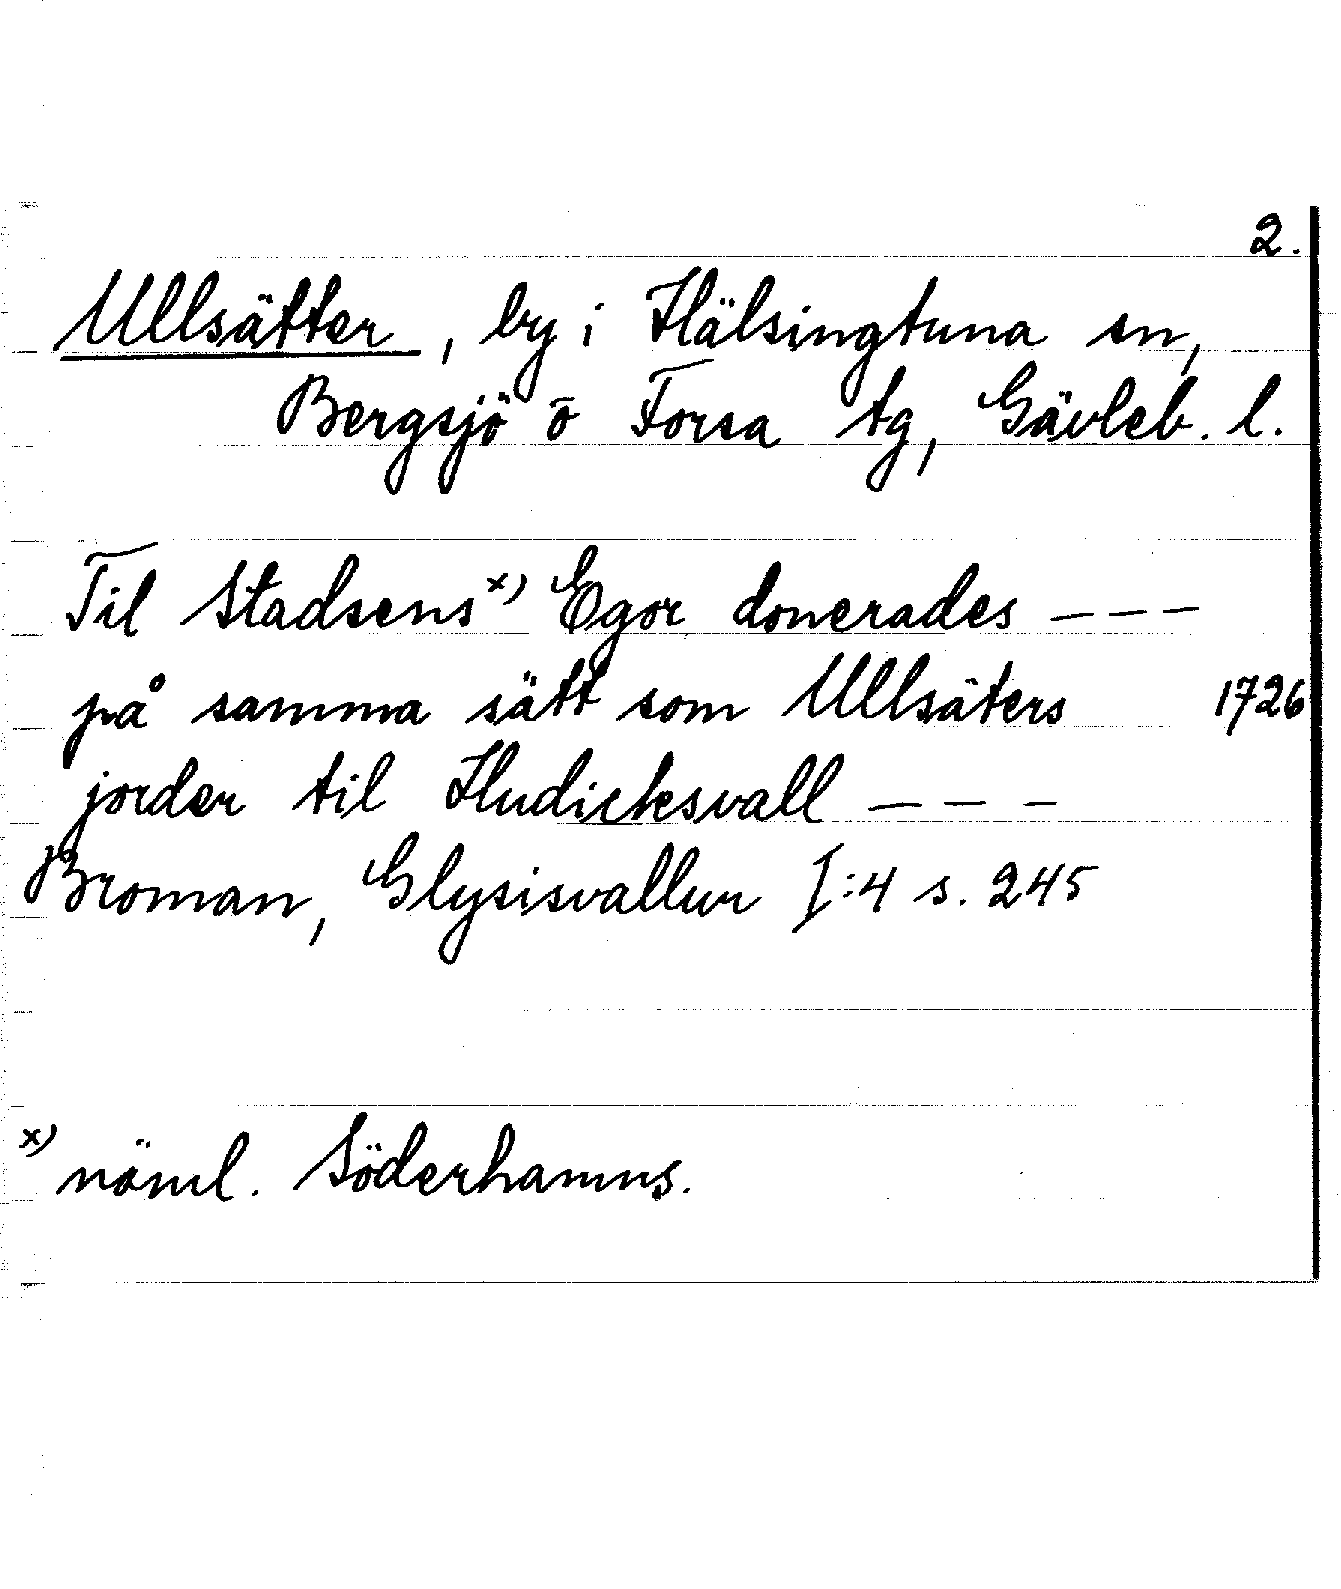 2.
Ullsätter, by i Hälsingtuna sn,
Bergsjö o Forsa tg, Gävleb. l.
Til Stadsens x) Egor donerades – – –
på samma sätt som Ullsäters 1726
jorder til Hudicksvall – – –
Broman, Glysisvallur I:4 s. 245
x) näml. Söderhamns.